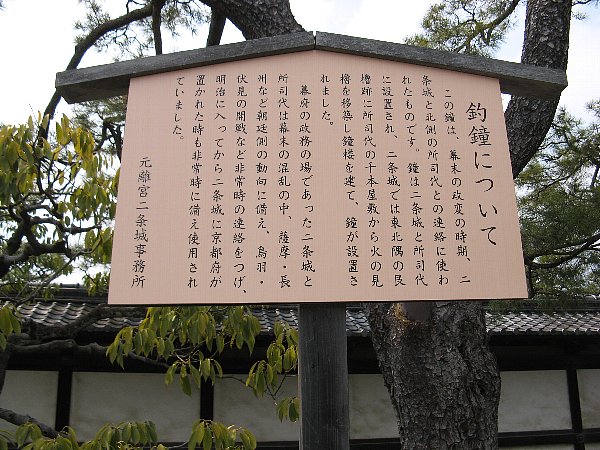 釣鐘について
この鐘は、幕末の政変の時期、二
条城と北側の所司代との連絡に使わ
れたものです。鐘は二条城と所司代
に設置され、二条城では東北隅の艮
櫓跡に所司代の千本屋敷から火の見
櫓を移築し鐘楼を建て、鐘が設置さ
れました。
幕府の政務の場であった二条城と
所司代は幕末の混乱の中、薩摩・長
州など朝廷側の動向に備え、鳥羽・
伏見の開戦など非常時の連絡をつげ、
明治に入ってから二条城に京都府が
置かれた時も非常時に備え使用され
ていました。
元離宮二条城事務所